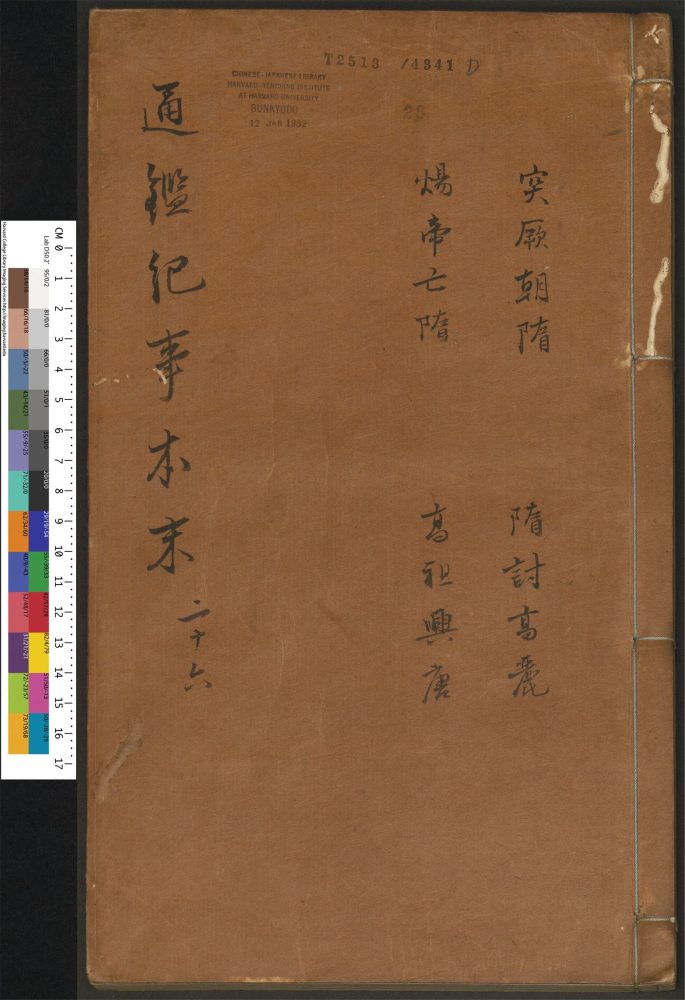 T2513 /4341 D
CHINESE-JAPANESE LIBRARY
HARVARD-YENCHING INSTITUTE
AT HARVARD UNIVERSITY
BUNKYODO
12 JAN 1952
26
突厥朝隋
隋討高麗
煬帝亡隋
高祖興唐
通鑑紀事本末
二十六
CM 0 1 2 3 4 5 6 7 8 9 10 11 12 13 14 15 16 17
Harvard College Library Imaging Services